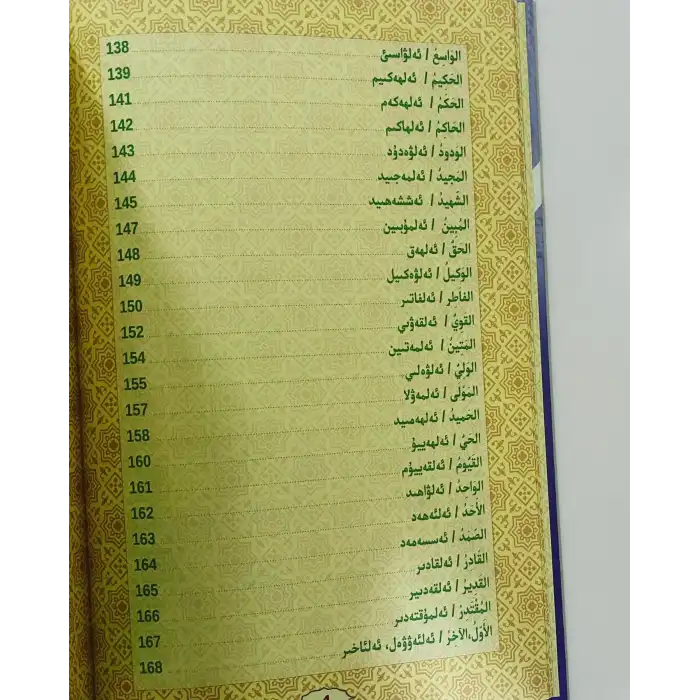 الوَاسِعُ / ئەلۋاسىئ 138
الحَكِيمُ / ئەلھەكىيم 139
الحَكَمُ / ئەلھەكەم 141
الحَاكِمُ / ئەلھاكىم 142
الوَدودُ / ئەلۋەدۇد 143
المَجيدُ / ئەلمەجىيد 144
الشَهِيدُ / ئەششەھىيد 145
المُبينُ / ئەلمۇبىين 147
الحَقُّ / ئەلھەق 148
الوَكيلُ / ئەلۋەكىيل 149
الفَاطِر / ئەلفاتىر 150
القَوِيُّ / ئەلقەۋىي 152
المَتِينُ / ئەلمەتىين 154
الوَلِيُّ / ئەلۋەلىي 155
المَوْلَى / ئەلمەۋلا 157
الحَميدُ / ئەلھەمىيد 158
الحَيُّ / ئەلھەييۇ 160
القَيُّومُ / ئەلقەييۇم 161
الوَاحدُ / ئەلۋاھىد 162
الأَحَدُ / ئەلئەھەد 163
الصَمَدُ / ئەسسەمەد 164
القَادرُ / ئەلقادىر 165
القَديرُ / ئەلقەدىير 166
المُقْتَدرُ / ئەلمۇقتەدىر 167
الأَوَّلُ،الآخِرُ / ئەلئەۋۋەل، ئەلئاخىر 168